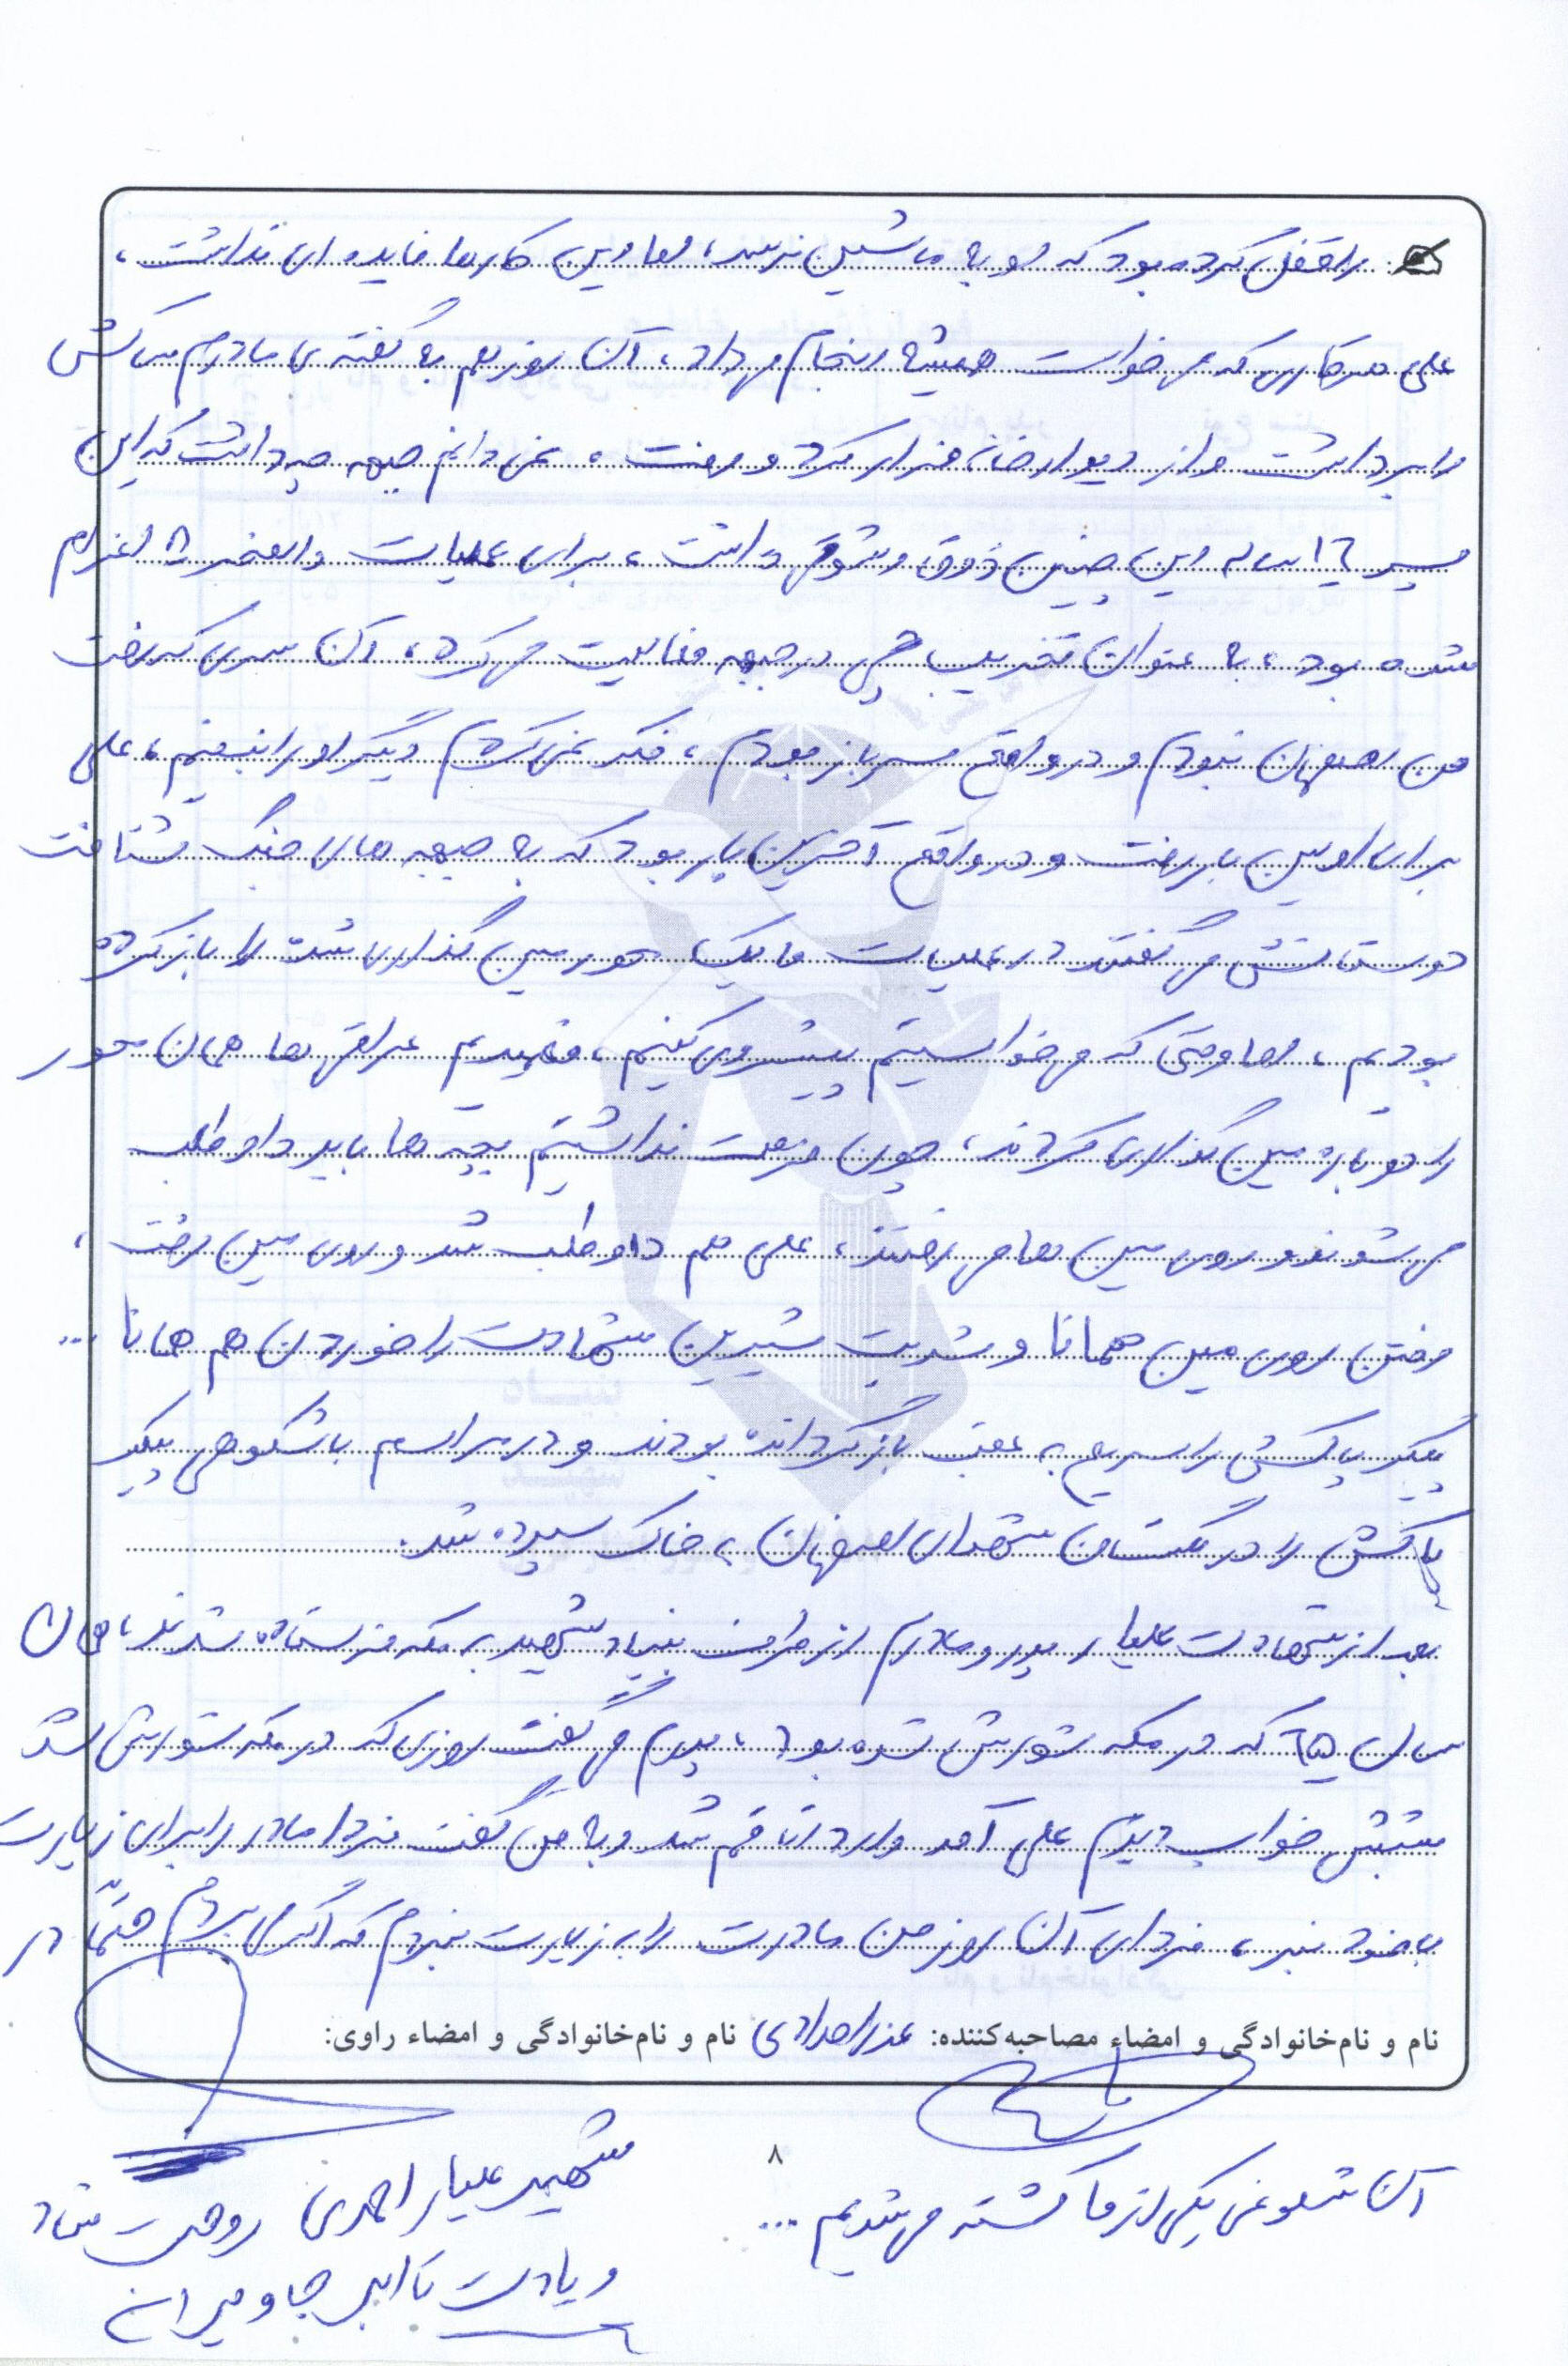 را قفل کرده بود که او به ماشین نرسد، اما این کارها فایده ای نداشت،
علی هر کاری که می خواست همیشه انجام میداد، آن روز هم به گفته ی مادرم ساکش
را برداشت و از دیوار خانه فرار کرد و رفت، نمی دانم جبهه چه داشت که این
پسر ۱۶ ساله این چنین ذوق و شوقی داشت، برای عملیات والفجر ۸ اعزام
شده بود، به عنوان تخریب چی در جبهه فعالیت می کرد، آن سری که رفت
من اصفهان نبودم و در واقع سرباز بودم، فکر نمی کردم دیگر او را نبینم، علی
برای اولین بار رفت و در واقع آخرین بار بود که به جبهه های جنگ شتافت
دوستانش می گفتند در عملیات ما یک محور مین گذاری شده را باز کرده
بودیم، اما وقتی که می خواستیم پیشروی کنیم، فهمیدیم عراقی ها همان محور
را دوباره مین گذاری کردند، چون فرصت نداشتیم بچه ها باید داوطلب
می شوند و روی مین ها می رفتند، علی هم داوطلب شد و روی مین رفت،
رفتن روی مین همانا و شربت شیرین شهادت را خوردن هم همانا ...
پیکر پاکش را سریع به عقب بازگردانده بودند و در مراسم باشکوهی پیکر
پاکش را در گلستان شهدای اصفهان به خاک سپرده شد.
بعد از شهادت علیار پدر و مادرم از طرف بنیاد شهید به مکه فرستاده شدند، همان
سال ۶۵ که در مکه شورش شده بود، پدرم می گفت روزی که در مکه شورش شد
شبش خواب دیدم علی آمد وارد اتاقم شد و به من گفت فردا مادر را برای زیارت
با خود نبر، فردای آن روز من مادرت را به زیارت نبردم که اگر می بردم حتماً در
نام و نام‌خانوادگی و امضاء مصاحبه‌کننده: عذرا مرادی نام و نام‌خانوادگی و امضاء راوی:
آن شلوغی یکی از ما کشته می شدیم ...
۸
شهید علیار احمدی روحت شاد
و یادت تا ابد جاویدان